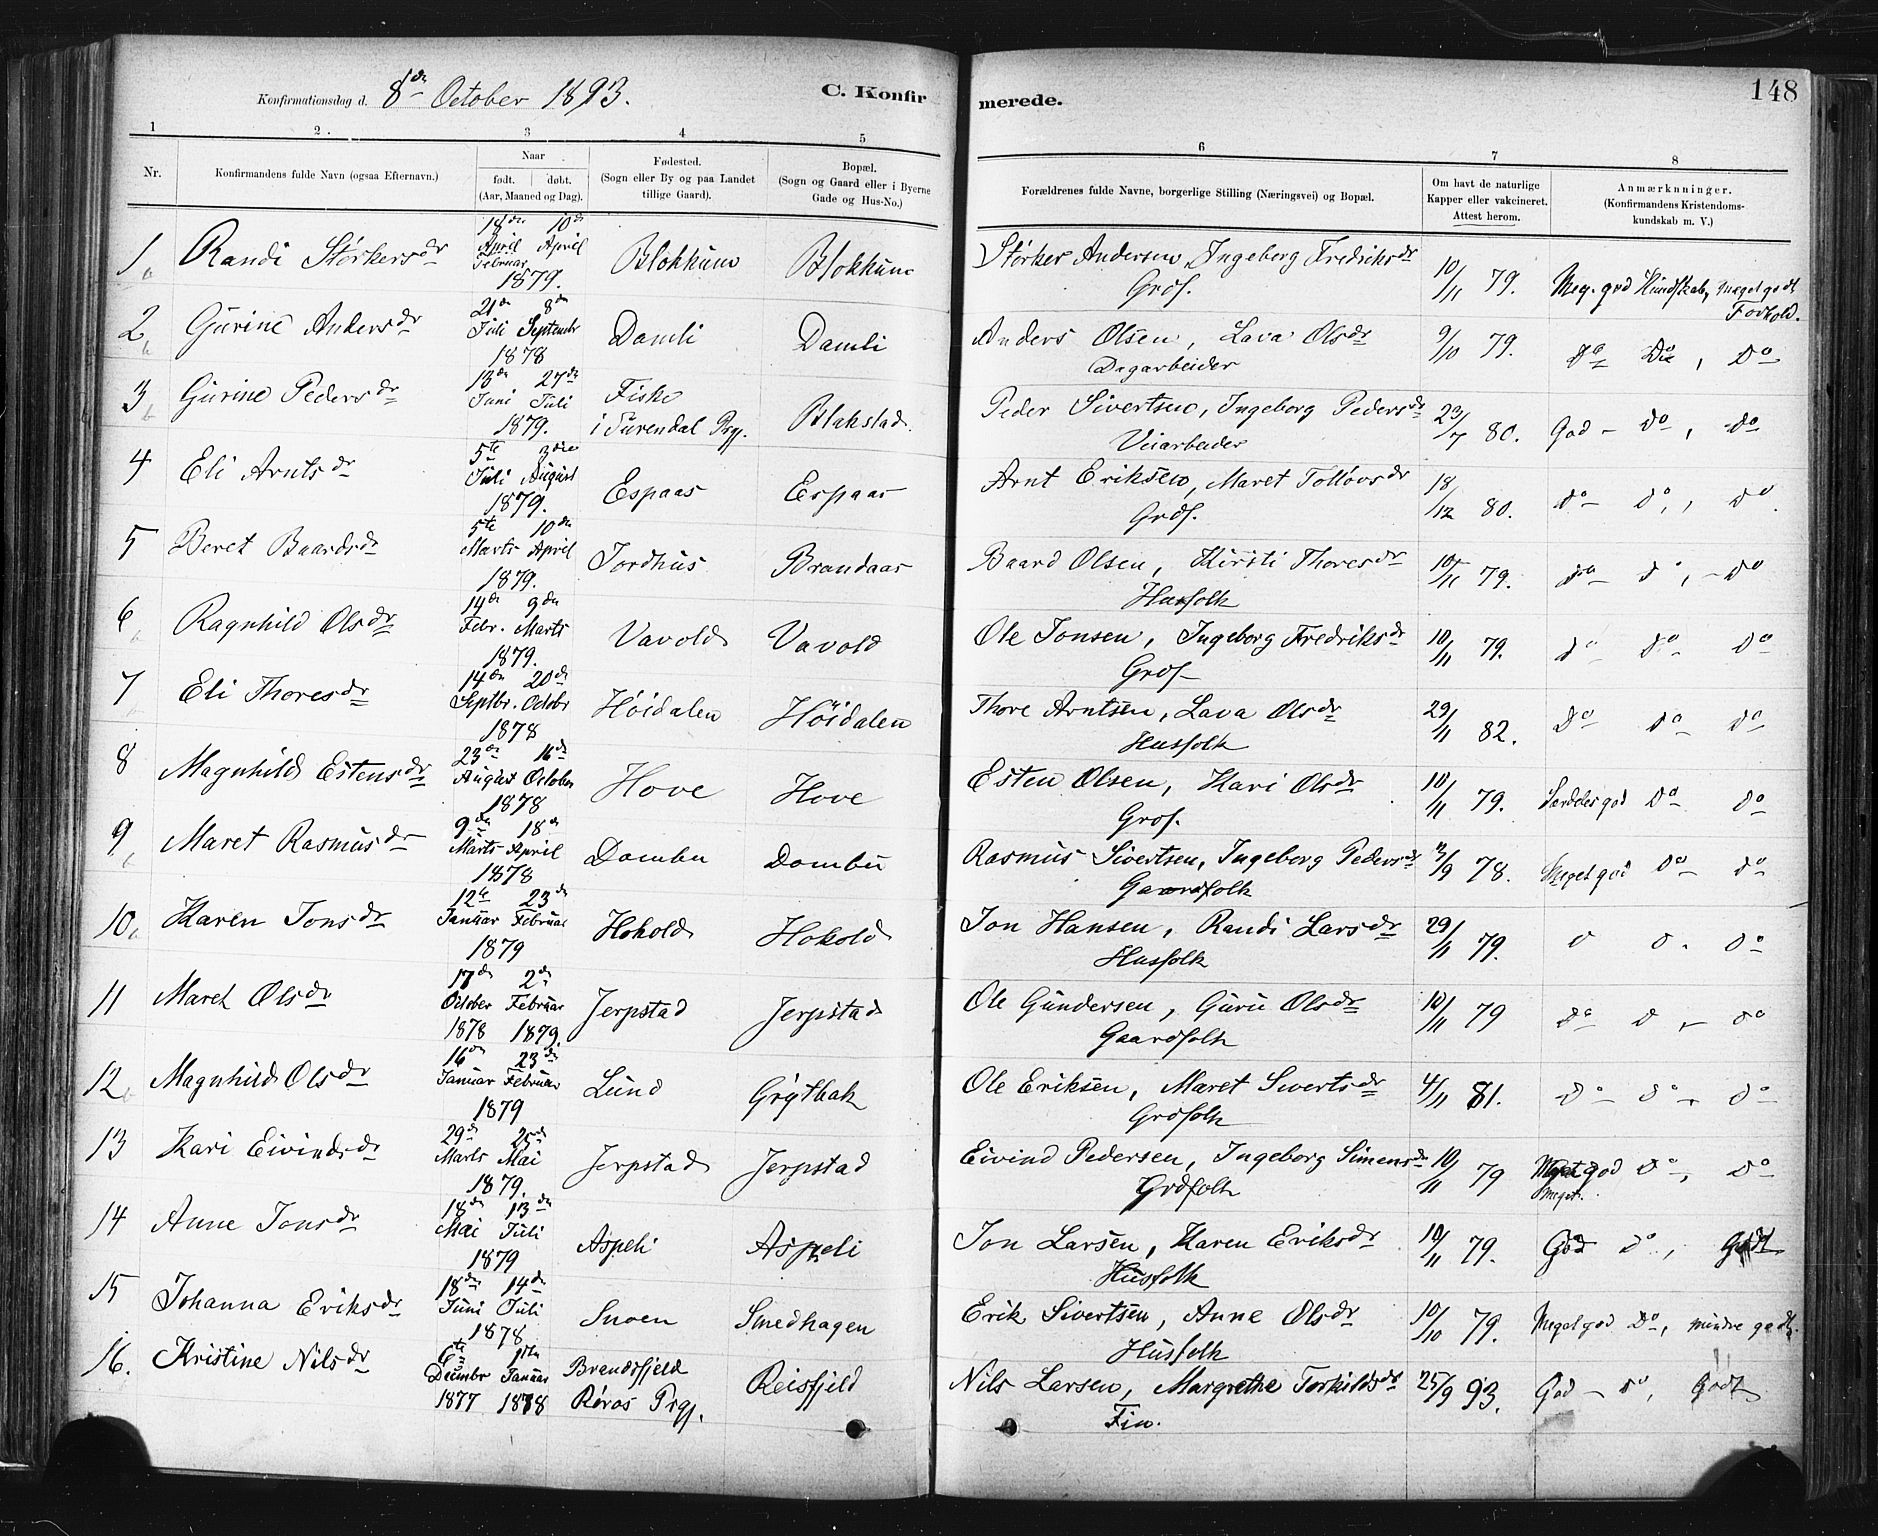 Konfirmationsdag d. 8de October 1893.
C. Konfirmerede.
148
1 2. 3 4 5 6 7 8
Nr.
Konfirmandens fulde Navn (ogsaa Efternavn.)
Naar
født. døbt.
(Aar, Maaned og Dag).
Fødested.
(Sogn eller By og paa Landet
tillige Gaard).
Bopæl.
(Sogn og Gaard eller i Byerne
Gade og Hus-No.)
Forældrenes fulde Navne, borgerlige Stilling (Næringsvei) og Bopæl.
Om havt de naturlige
Kapper eller vakcineret.
Attest herom.
Anmærknninger.
(Konfirmandens Kristendoms-
kundskab m. V.)
1 Randi Størkersdr 10de
April April
Februar
1879. Blokkum Blokkum Størker Andersen, Ingeborg Fredriksdr
Grdf. 10/11 79. Meg. god Kundskab, meget godt
Forhold.
2 Gurine Andersdr 21de 8de
Juli Septembr
1878 Damli Damli Anders Olsen, Lava Olsdr
Dagarbeider 9/10 79. Do Do, Do
3 Gurine Pedersdr 13de 27de
Juni Juli
1879. Fiske
i Surendal Prgj. Blakstad Peder Sivertsen, Ingeborg Pedersdr
Veiarbeider 23/7 80. God - do, do
4 Eli Arntsdr 5te 3die
Juli August
1879. Espaas Espaas Arnt Eriksen, Maret Tolløvsdr
Grdf. 18/12 80. do do, do
5 Beret Baardsdr 5te 10de
Marts April
1879. Jordhus Brandaas Baard Olsen, Kirsti Thoresdr
Husfolk 10/11 79. do d, do
6 Ragnhild Olsdr 14de 9de
Febr. Marts
1879. Vavold Vavold Ole Jonsen, Ingeborg Fredriksdr
Grdf 10/11 79. do do do
7 Eli Thoresdr 14de 20de
Septbr. Octobr
1878 Høidalen Høidalen Thore Arntsen, Lava Olsdr
Husfolk 29/11 82. Do do do
8 Magnhild Estensdr 23de 16de
August October
1878 Hove Hove Esten Olsen, Kari Olsdr
Grdf. 10/11 79. Særdeles god Do do
9 Maret Rasmusdr 9de 18de
Marts April
1878 Dombu Dombu Rasmus Sivertsen, Ingeborg Pedersdr
Gaardfolk 78. Meget god Do do
10 Karen Jonsdr 12te 23de
Januar Februar
1879 Hokold Hokold Jon Hansen, Randi Larsdr
Husfolk 29/11 79. d d. do
11 Maret Olsdr 17de 2de
October Februar
1878 1879. Jerpstad Jerpstad Ole Gundersen, Guru Olsdr
Gaardfolk 10/11 79 do d do
12 Magnhild Olsdr 16de 23de
Januar Februar
1879 Lund Grytbak Ole Eriksen, Maret Sivertsdr
Grdfolk 4/11 81. do do do
13 Kari Eivindsdr 29de 25de
Marts Mai
1879. Jerpstad Jerpstad Eivind Pedersen, Ingeborg Simensdr
Grdfolk 10/11 79 Meget god do, do
Meget.
14 Anne Jonsdr 18de 13de
Mai Juli
1879 Aspeli Aspeli Jon Larsen, Karen Eriksdr
Husfolk 10/11 79. God do, Godt
15 Johanna Eriksdr 18de 14de
Juni Juli
1878. Snoen Smedhagen Erik Sivertsen, Anne Olsdr
Husfolk 10/10 79. Meget god Do, mindre godt.
16. Kristine Nilsdr 6te 1ste
Decembr Januar
1877 1878 Brandsfjeld
Røros Prgj. Reisfjeld Nils Larsen, Margrethe Torkildsdr
Fin. 25/9 93. God - do, Godt